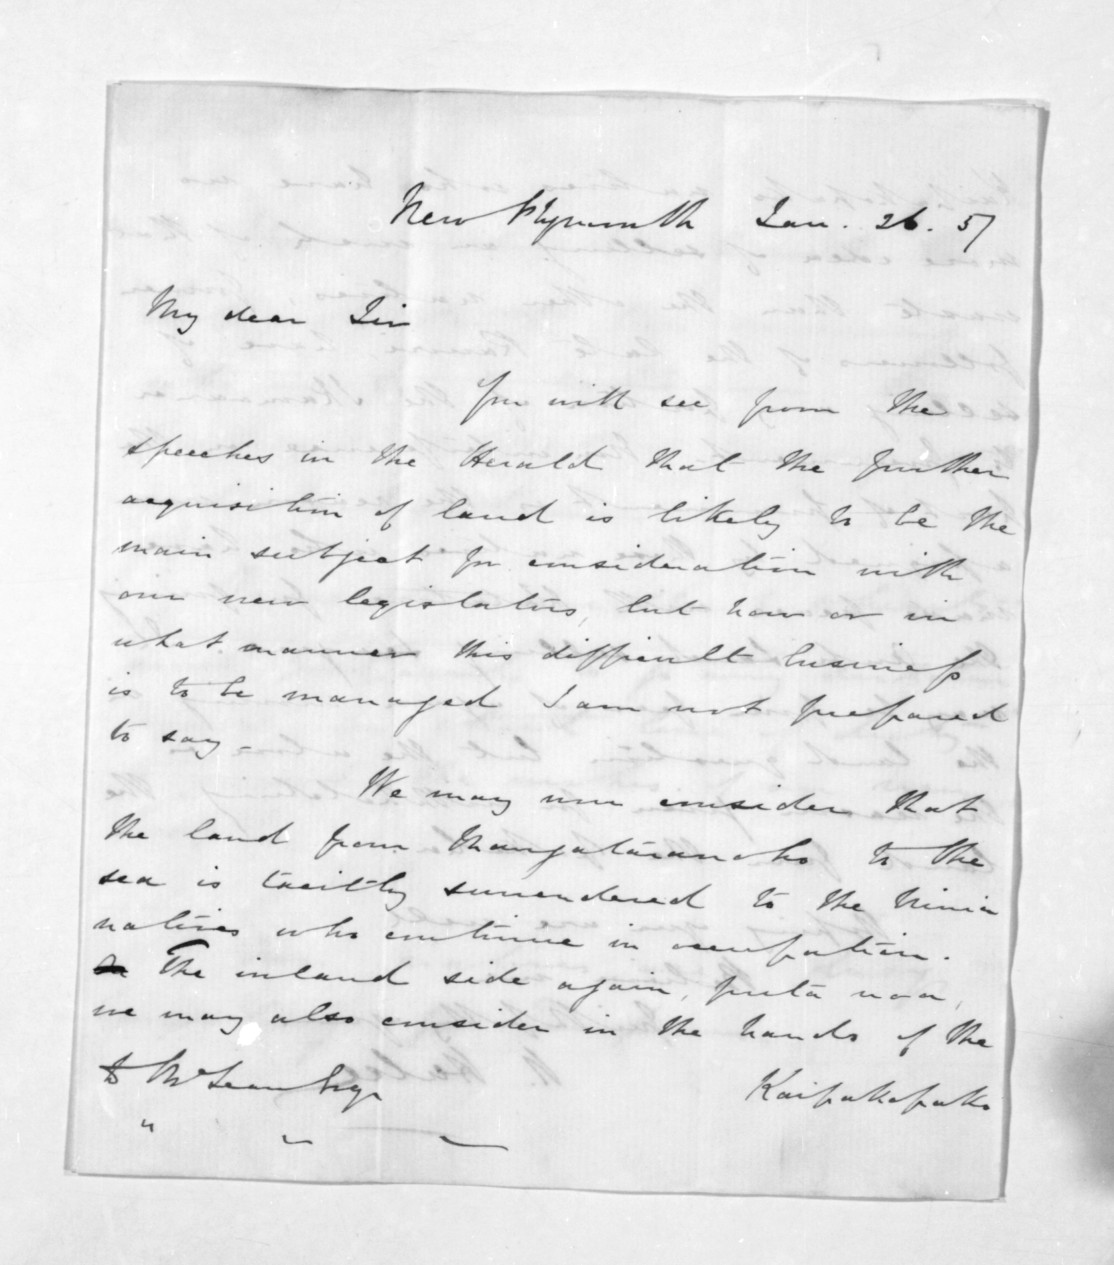 New Plymouth Jan. 26. 57
My dear Sir
You will see from the
speeches in the Herald that the further
acquisition of land is likely to be the
main subject for consideration with
our new legislators, but how or in
what manner this difficult business
is to be managed I am not prepared
to say_
We may now consider that
the land from to the
sea is tacitly surrendered to the Ninia
natives who continue in occupation.
The inland side again, puta noa,
we may also consider in the hands of the
Kaipakopako
D McLean Esqr
" " "